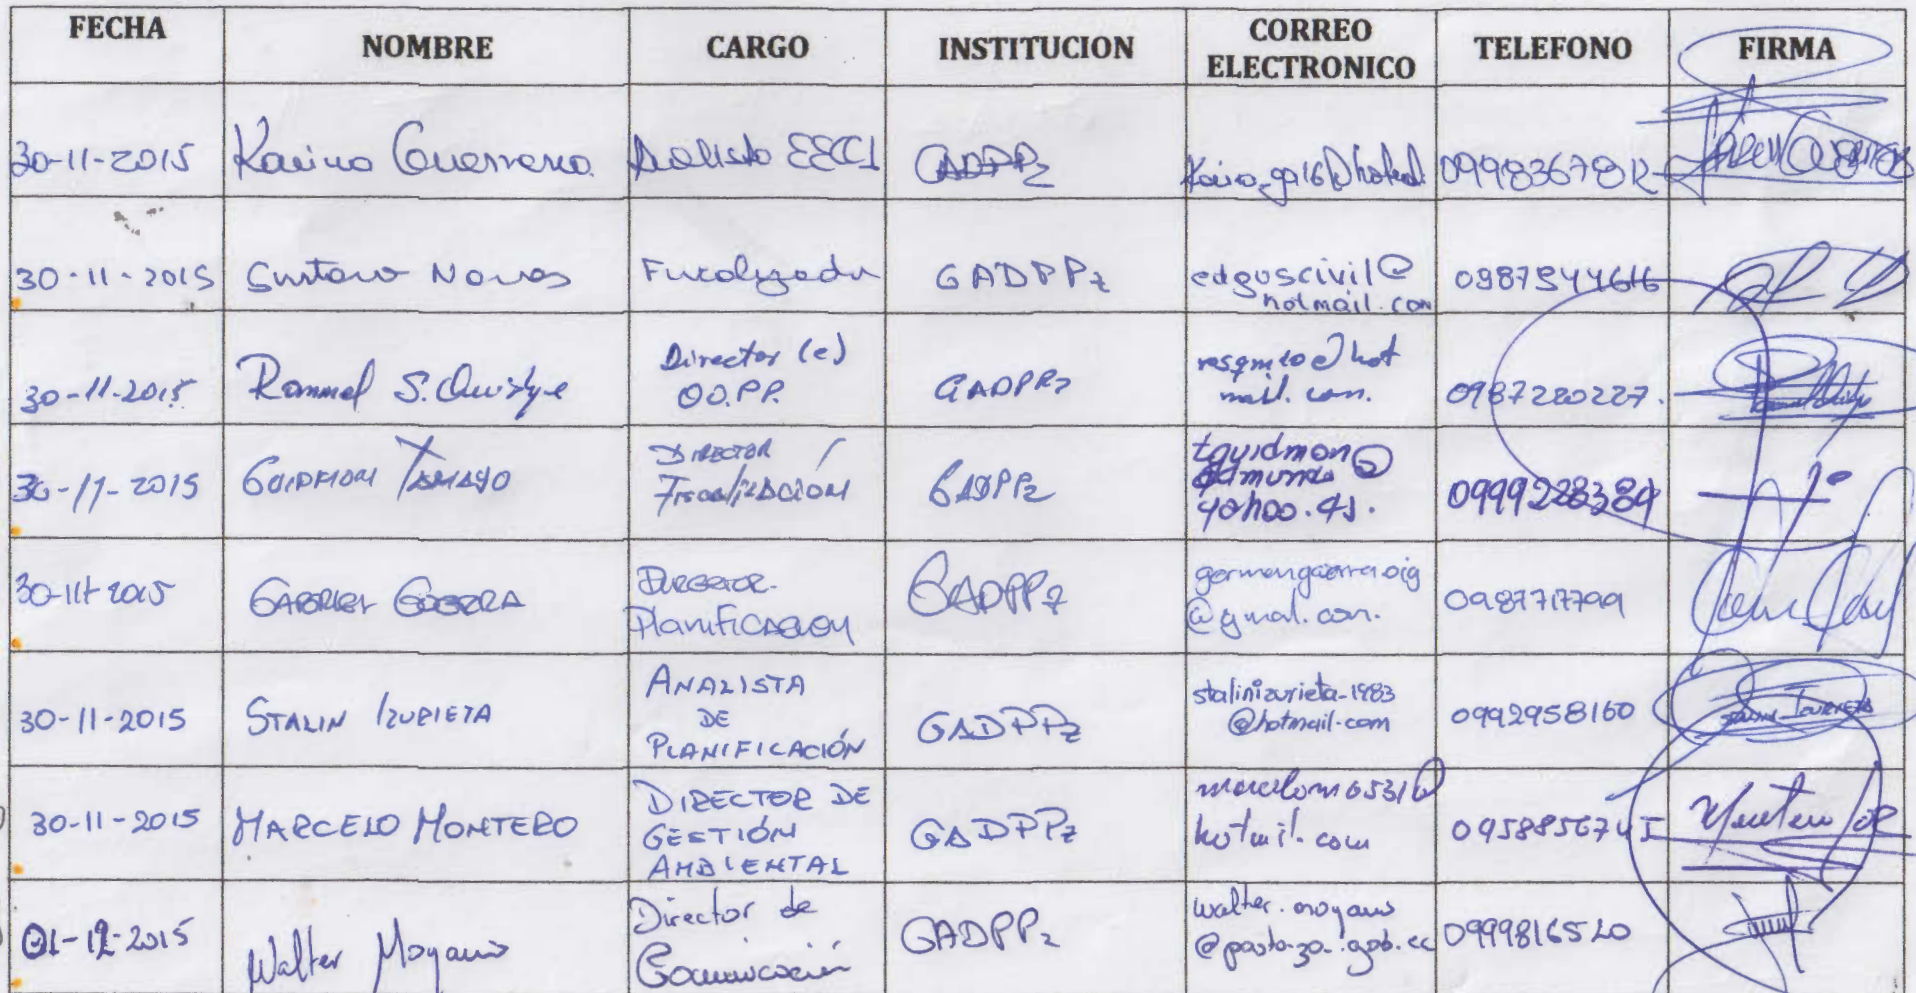 FECHA NOMBRE CARGO INSTITUCION CORREO ELECTRONICO TELEFONO FIRMA
30-11-2015 Karina Guerrero. Analista EECC1 GADPPz 
30-11-2015 Gustavo Navas Fiscalizador GADPPz edguscivil@ hotmail.com
30-11-2015 Rommel S. Director (e) OO.PP. GADPPz hot mail. com. 0987220227.
30-11-2015 GUIDMON TAMAYO DIRECTOR Fiscalización GADPPz tguidmon@ yahoo.es.
30-11-2015 GABRIEL GUERRA DIRECTOR. Planificación GADPPz @gmail.com.
30-11-2015 STALIN IZURIETA ANALISTA DE PLANIFICACIÓN GADPPz stalinizurieta-1983 @hotmail.com 0992958160 STALIN IZURIETA
30-11-2015 MARCELO MONTERO DIRECTOR DE GESTIÓN AMBIENTAL GADPPz hotmail.com
01-12-2015 Walter Moyano Director de Comunicación GADPPz walter.moyano @pastaza.gob.ec 0999816520